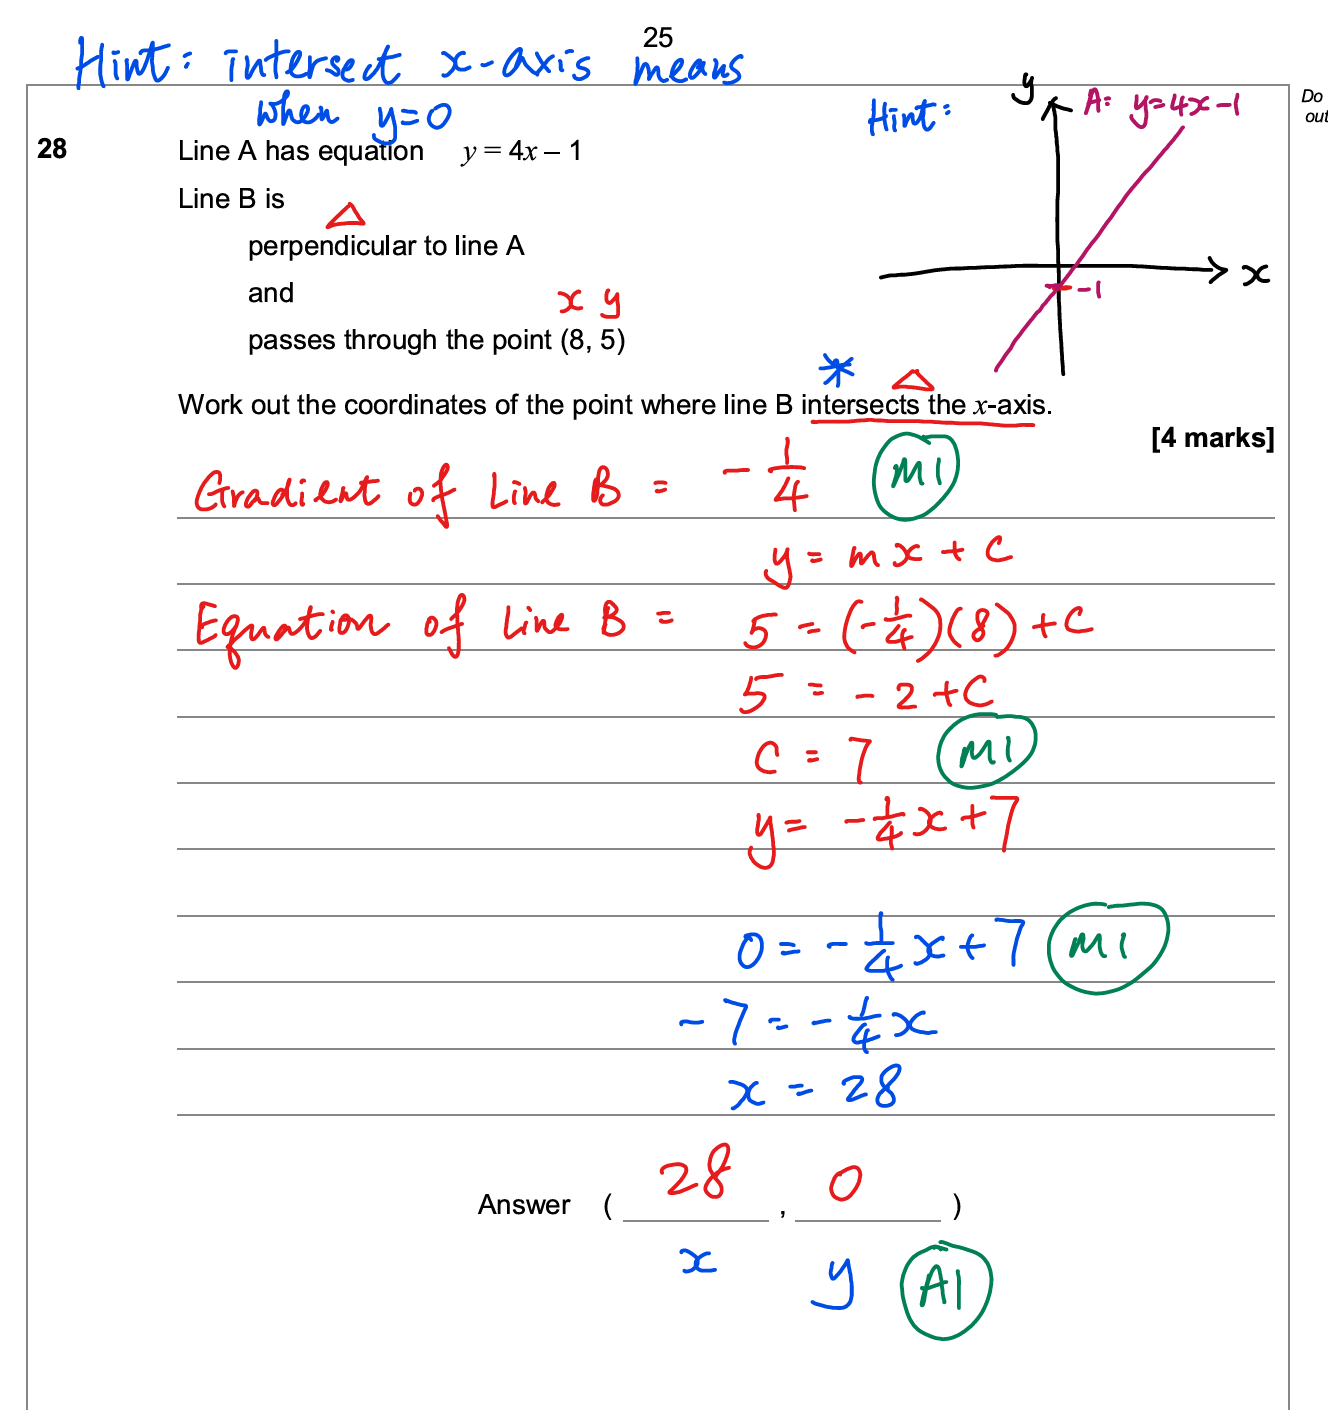 25
Hint: intersect x-axis means
when y=0
Do
out
Hint:
y
A: y=4x-1
28 Line A has equation y = 4x – 1
Line B is
perpendicular to line A
and
x y
passes through the point (8, 5)
x
-1
*
Work out the coordinates of the point where line B intersects the x-axis.
[4 marks]
Gradient of Line B = -1/4 M1
y = mx + c
Equation of Line B = 5 = (-1/4)(8) + c
5 = -2 + c
c = 7 M1
y = -1/4x + 7
0 = -1/4x + 7 M1
-7 = -1/4x
x = 28
Answer ( 28 , 0 )
x y A1